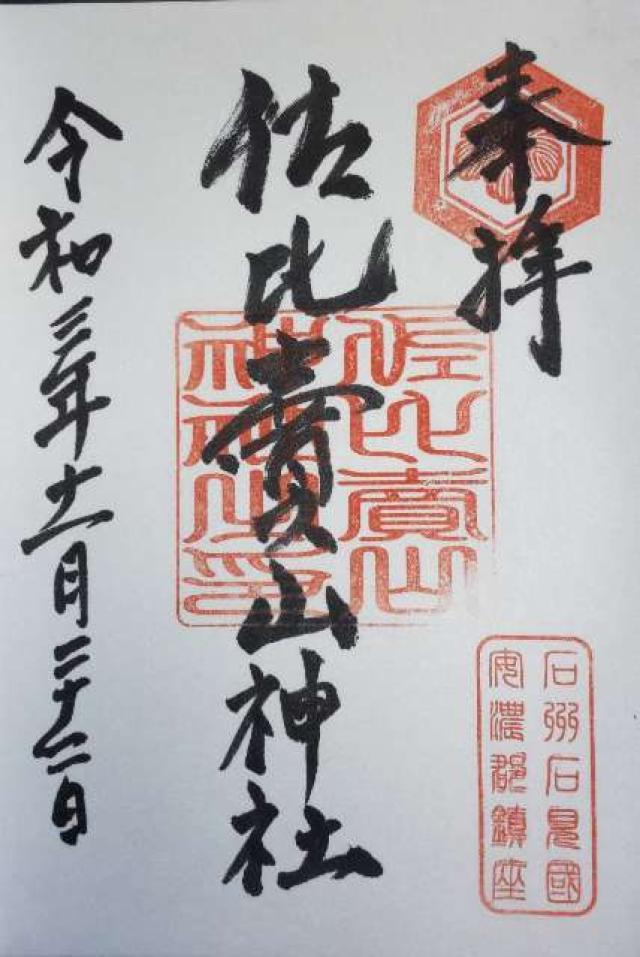 奉拝
佐比賣山神社
令和三年十一月二十二日
佐比賣山
神社之印
石州石見國
安濃郡鎮座